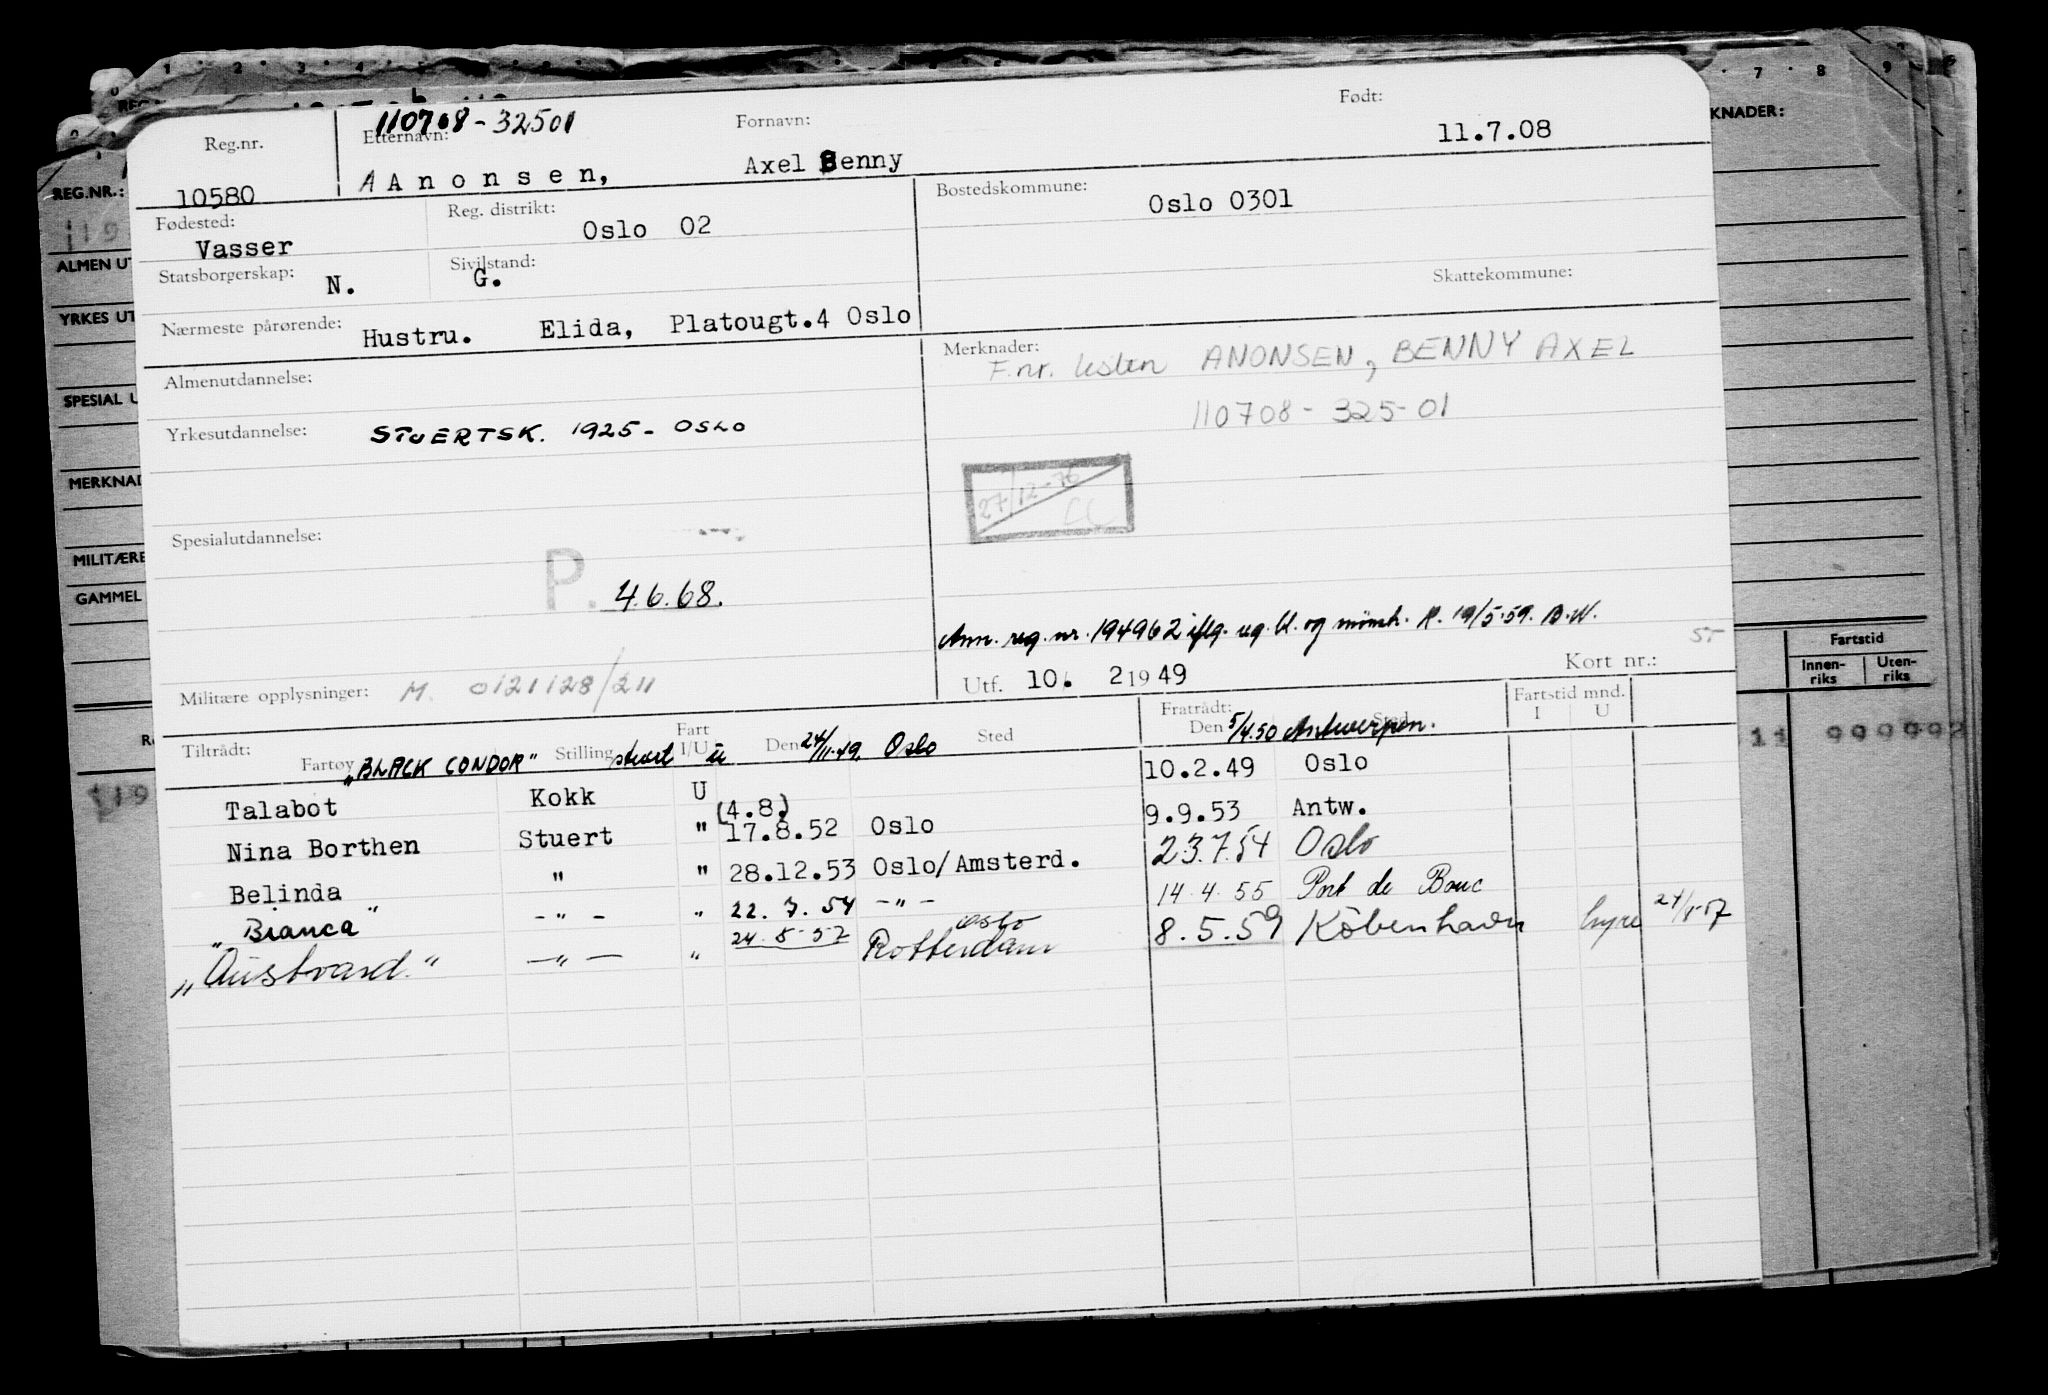 110708-32501
Reg.nr. Etternavn: Fornavn: Født:
10580 AAnonsen, Axel Benny 11.7.08
Fødested: Reg. distrikt: Bostedskommune:
Vasser Oslo 02 Oslo 0301
Statsborgerskap: Sivilstand: Skattekommune:
N. G.
Nærmeste pårørende: Hustru. Elida, Platougt.4 Oslo
Merknader:
F.nr. listen ANONSEN, BENNY AXEL
110708-325-01
27/12-76
CC
Almenutdannelse:
Yrkesutdannelse: STUERTSK. 1925- OSLO
Spesialutdannelse:
P. 4.6.68.
Ann. reg. nr. 194962 iflg. og R. 19/5-59. B.N.
ST
Militære opplysninger: M. 0121128/211
Utf. 10. 2 1949 Kort nr.:
Tiltrådt: Fartøy Stilling Fart I/U Den Sted Fratrådt: Den Sted Fartstid mnd. I U
"BLACK CONDOR" stuert u 24/11-49. Oslo 5/4.50 Antwerpen.
Talabot Kokk U 10.2.49 Oslo
Nina Borthen Stuert " (4.8.) 17.8.52 Oslo 9.9.53 Antw.
Belinda " " 28.12.53 Oslo/Amsterd. 23.7.54 Oslo
"Bianca" -"- " 22.7.54 -"- 14.4.55 Port de Bouc
"Austvard." -"- " 24.5.57 Oslo Rotterdam 8.5.59 København hyre 24/5-57
REG.NR.:
119
ALMEN UT
YRKES UT
SPESIAL U
MERKNAD
MILITÆRE
GAMMEL
KNADER:
Fartstid
Innen-riks Uten-riks
11 999992
119